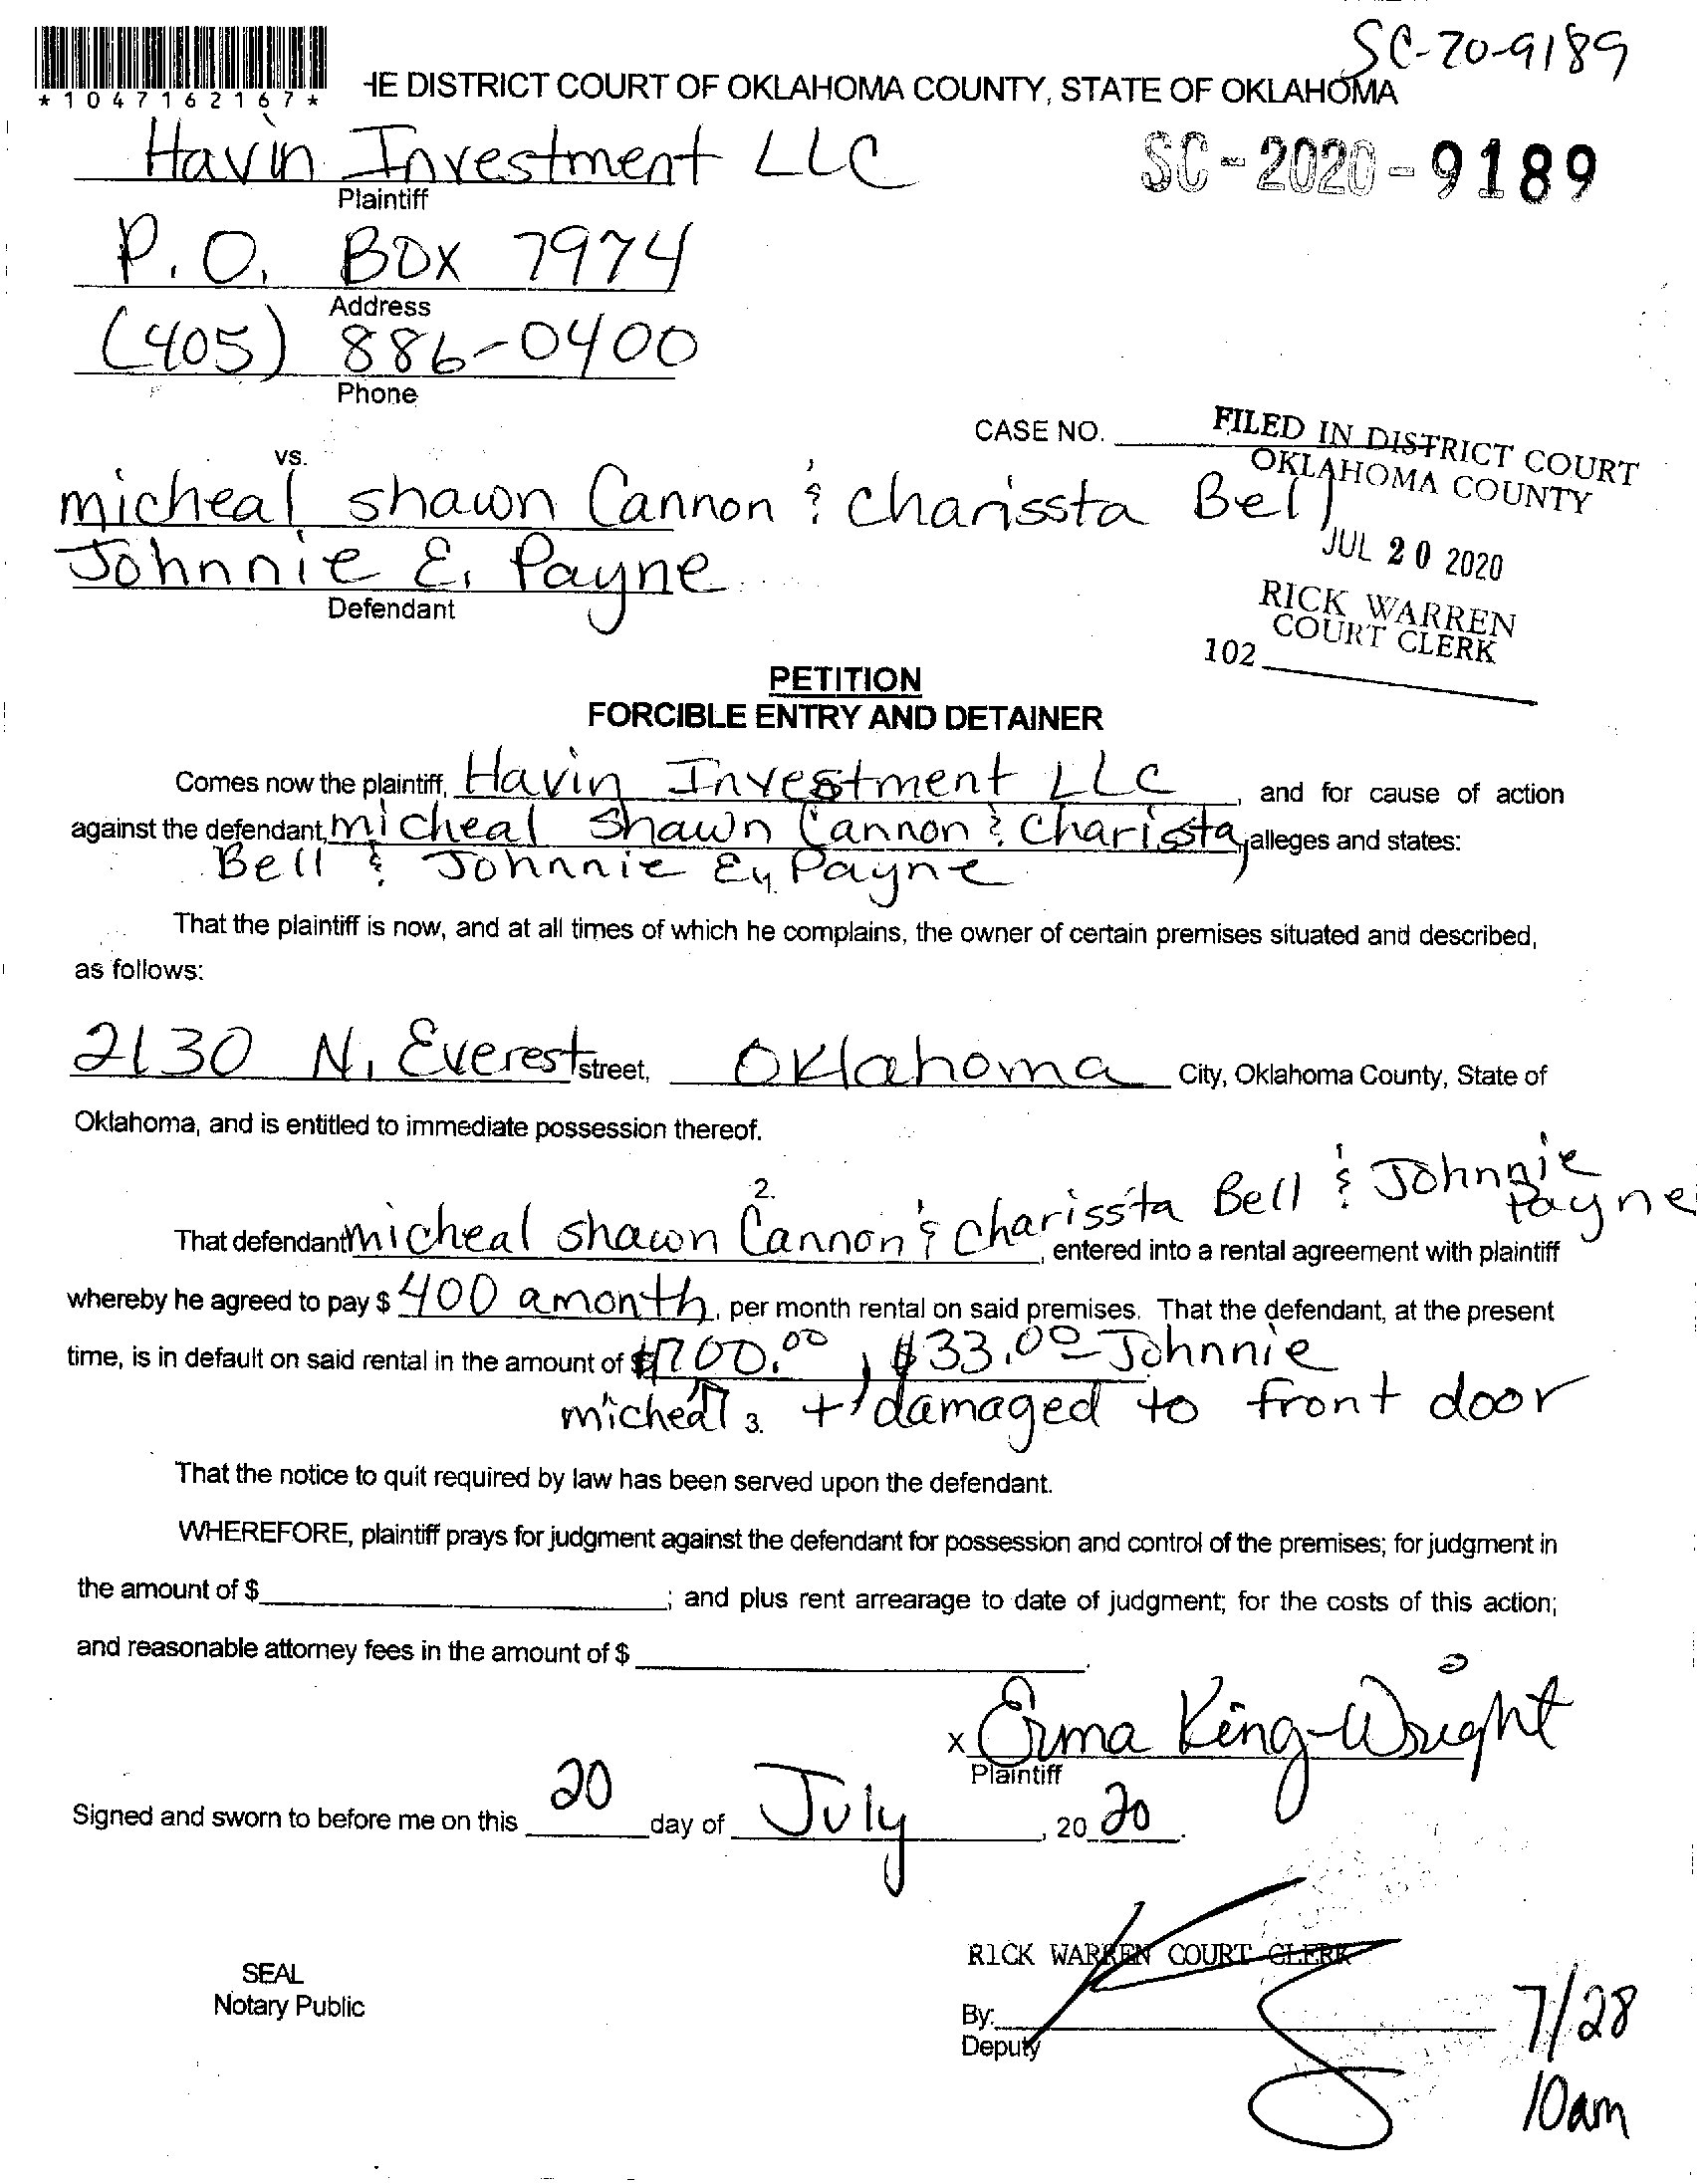 SC-20-9189
*1047162167*
HE DISTRICT COURT OF OKLAHOMA COUNTY, STATE OF OKLAHOMA
Havin Investment LLC
SC-2020-9189
Plaintiff
P.O. BOX 7974
Address
(405) 886-0400
Phone
CASE NO.
FILED IN DISTRICT COURT
OKLAHOMA COUNTY
JUL 20 2020
RICK WARREN
COURT CLERK
102
vs.
micheal shawn Cannon & Charissta Bell
Johnnie E. Payne
Defendant
PETITION
FORCIBLE ENTRY AND DETAINER
Comes now the plaintiff, Havin Investment LLC, and for cause of action
against the defendant, micheal shawn Cannon & Charissta, alleges and states:
Bell & Johnnie E. Payne
That the plaintiff is now, and at all times of which he complains, the owner of certain premises situated and described,
as follows:
2130 N. Everest street, Oklahoma City, Oklahoma County, State of
Oklahoma, and is entitled to immediate possession thereof.
2.
That defendant micheal shawn Cannon & Charissta Bell & Johnnie Payne, entered into a rental agreement with plaintiff
whereby he agreed to pay $ 400 a month, per month rental on said premises. That the defendant, at the present
time, is in default on said rental in the amount of $700.00, $33.00 Johnnie
micheal 3. + damaged to front door
That the notice to quit required by law has been served upon the defendant.
WHEREFORE, plaintiff prays for judgment against the defendant for possession and control of the premises; for judgment in
the amount of $ ; and plus rent arrearage to date of judgment; for the costs of this action;
and reasonable attorney fees in the amount of $ .
x Erma King-Wright
Plaintiff
Signed and sworn to before me on this 20 day of July, 20 20.
RICK WARREN COURT CLERK
SEAL
Notary Public
By:
Deputy
7/28
10am